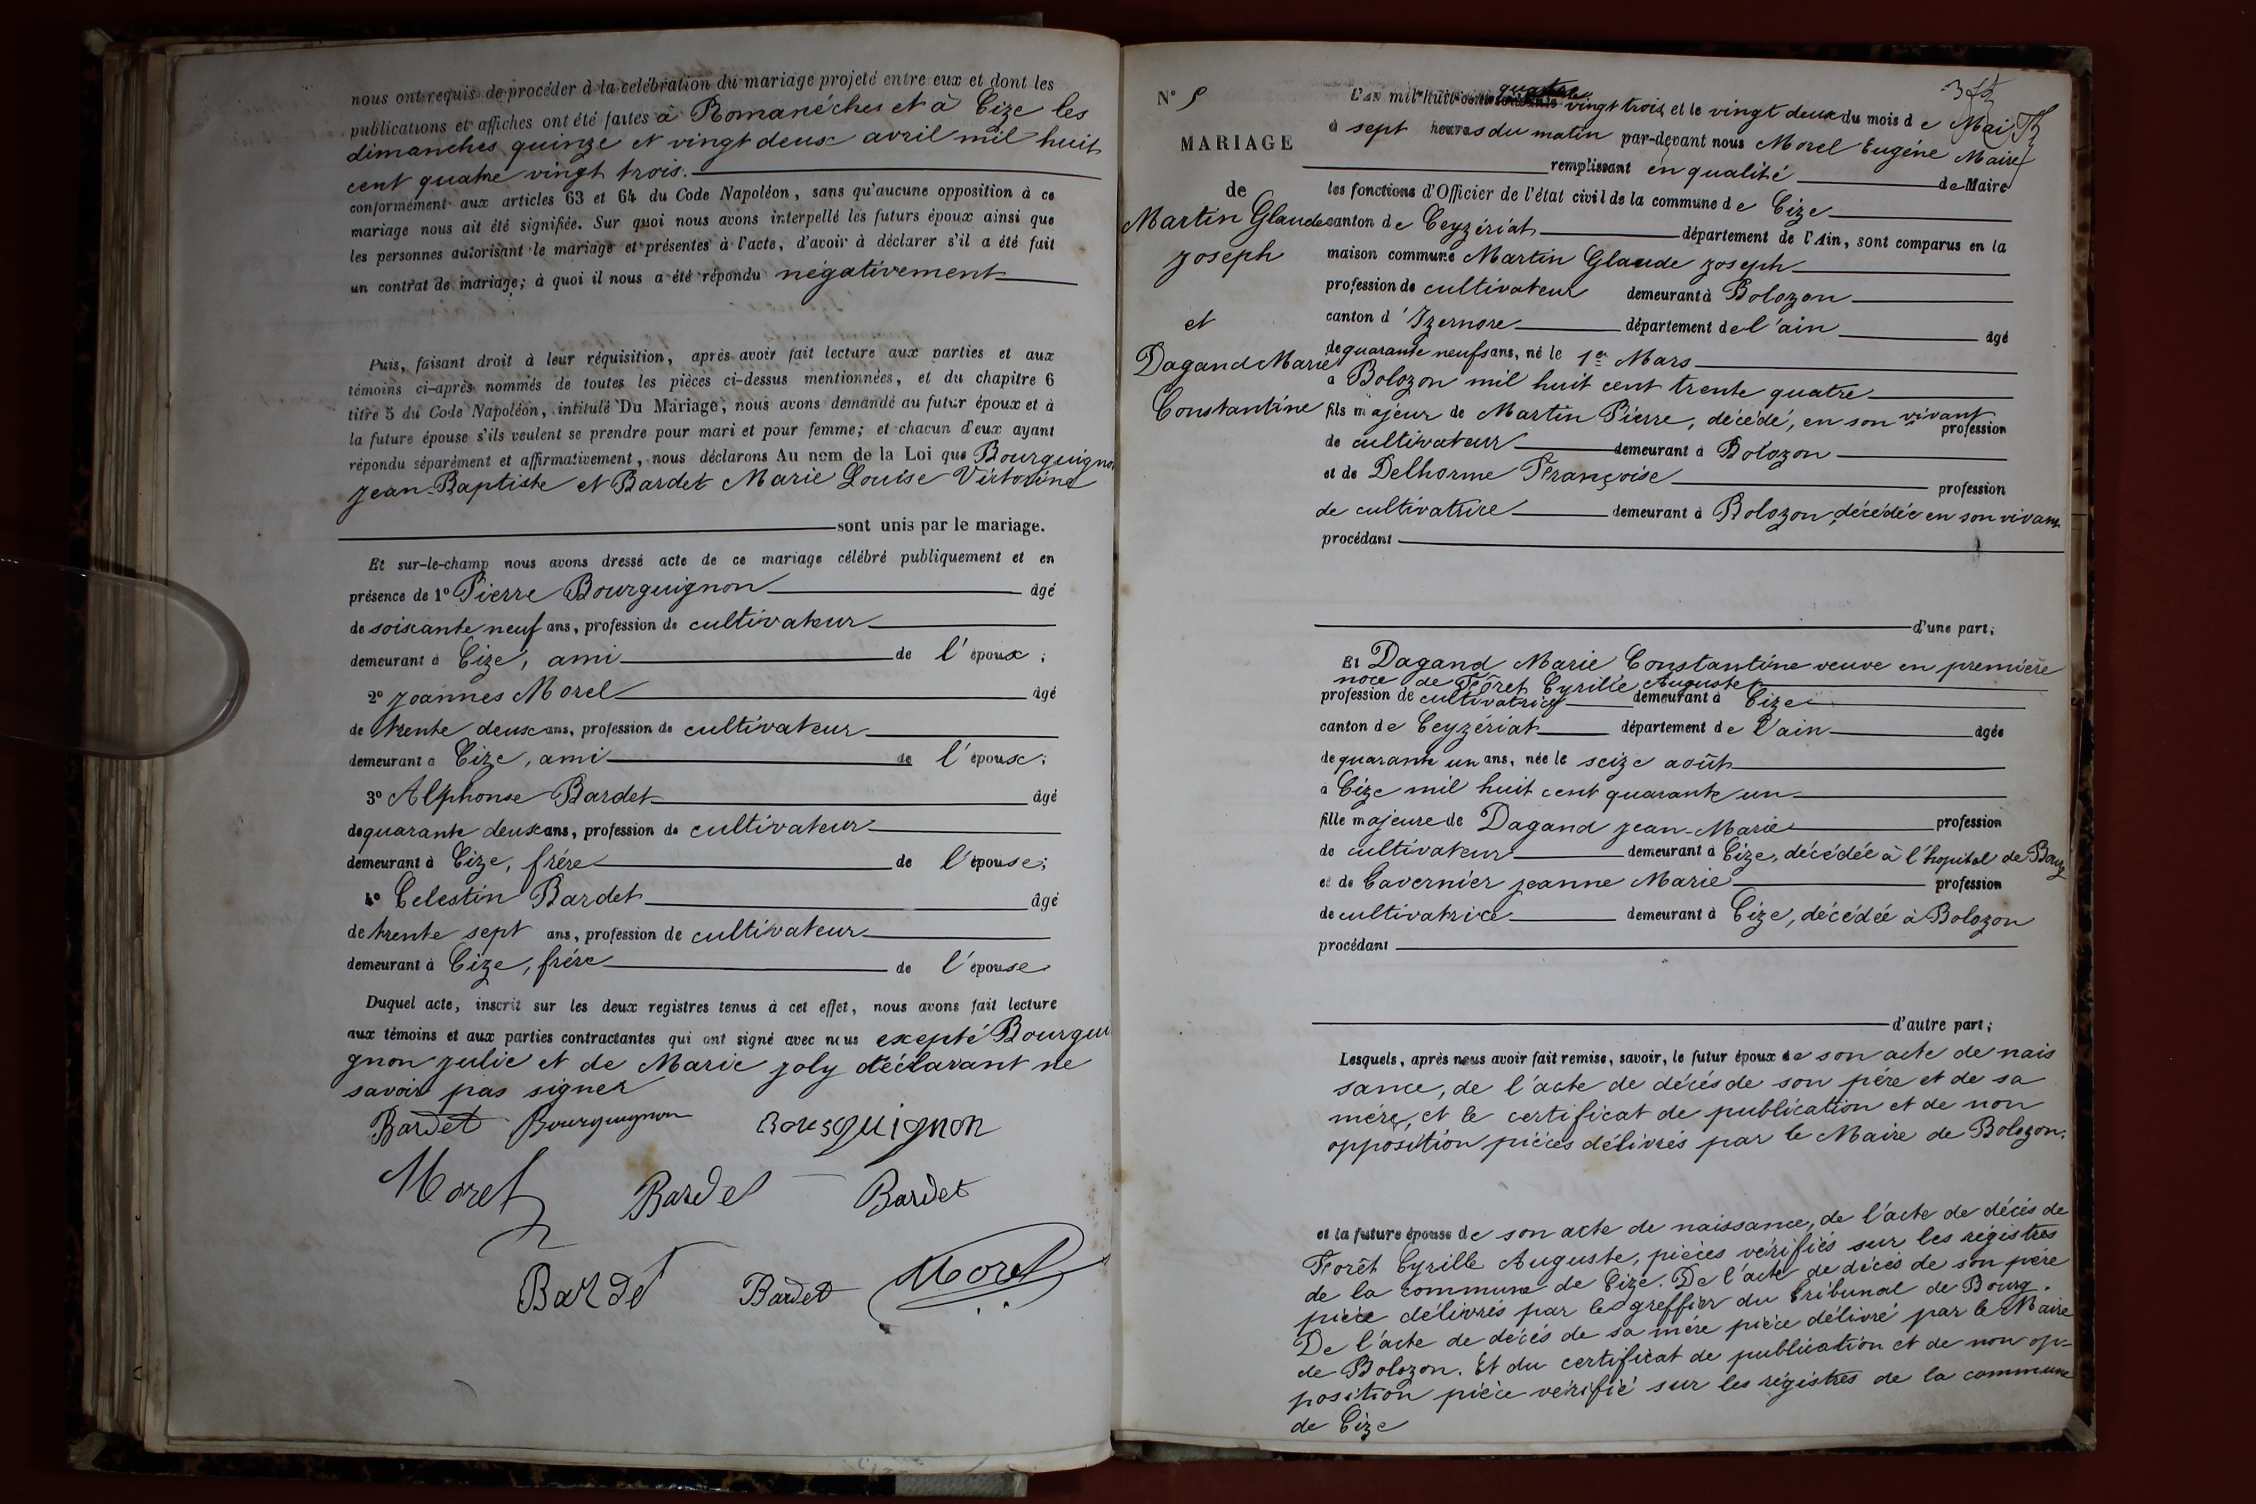 nous ont requis de procéder à la célébration du mariage projeté entre eux et dont les
publications et affiches ont été faites à Romanéches et à Cize les
dimanches quinze et vingt deux avril mil huit
cent quatre vingt trois.
conformément aux articles 63 et 64 du Code Napoléon, sans qu'aucune opposition à ce
mariage nous ait été signifiée. Sur quoi nous avons interpellé les futurs époux ainsi que
les personnes autorisant le mariage et présentes à l'acte, d'avoir à déclarer s'il a été fait
un contrat de mariage; à quoi il nous a été répondu négativement
Puis, faisant droit à leur réquisition, après avoir fait lecture aux parties et aux
témoins ci-après nommés de toutes les pièces ci-dessus mentionnées, et du chapitre 6
titre 5 du Code Napoléon, intitulé Du Mariage, nous avons demandé au futur époux et à
la future épouse s'ils veulent se prendre pour mari et pour femme; et chacun d'eux ayant
répondu séparément et affirmativement, nous déclarons Au nom de la Loi que Bourguignon
Jean-Baptiste et Bardet Marie Louise Victorine
sont unis par le mariage.
Et sur-le-champ nous avons dressé acte de ce mariage célébré publiquement et en
présence de 1° Pierre Bourguignon âgé
de soixante neuf ans, profession de cultivateur
demeurant à Cize, ami de l'époux;
2° Joannes Morel âgé
de trente deux ans, profession de cultivateur
demeurant à Cize, ami de l'époux;
3° Alphonse Bardet âgé
de quarante deux ans, profession de cultivateur
demeurant à Cize, frére de l'épouse;
4° Celestin Bardet âgé
de trente sept ans, profession de cultivateur
demeurant à Cize, frére de l'épouse
Duquel acte, inscrit sur les deux registres tenus à cet effet, nous avons fait lecture
aux témoins et aux parties contractantes qui ont signé avec nous exepté Bourgui
gnon Julie et de Marie Joly déclarant ne
savoir pas signer
Bardet Bourguignon Bourguignon
Morel Bardet Bardet
Bardet Bardet Morel
N° 5
MARIAGE
de
Martin Glaude
Joseph
et
Dagand Marie
Constantine
L'an mil huit cent quatre vingt trois et le vingt deux du mois de Mai
à sept heures du matin par-devant nous Morel Eugéne Maire
remplissant en qualité de Maire
les fonctions d'Officier de l'état civil de la commune de Cize
canton de Ceyzériat département de l'Ain, sont comparus en la
maison commune Martin Glaude Joseph
profession de cultivateur demeurant à Bolozon
canton d'Izernore département de l'ain âgé
de quarante neuf ans, né le 1er Mars
à Bolozon mil huit cent trente quatre
fils majeur de Martin Pierre, décédé, en son vivant profession
de cultivateur demeurant à Bolozon
et de Delhorme Françoise profession
de cultivatrice demeurant à Bolozon, décédée en son vivant
procédant
d'une part;
Et Dagand Marie Constantine veuve en premiére
noce de Forêt Cyrille Auguste
profession de cultivatrice demeurant à Cize
canton de Ceyzériat département de l'ain âgée
de quarante un ans, née le seize août
à Cize mil huit cent quarante un
fille majeure de Dagand Jean-Marie profession
de cultivateur demeurant à Cize, décédée à l'hopital de Bourg
et de Cavernier Jeanne Marie profession
de cultivatrice demeurant à Cize, décédée à Bolozon
procédant
d'autre part;
Lesquels, après nous avoir fait remise, savoir, le futur époux de son acte de nais
sance, de l'acte de décés de son pére et de sa
mére, et le certificat de publication et de non
opposition piéces délivrés par le Maire de Bolozon.
et la future épouse de son acte de naissance, de l'acte de décés de
Forêt Cyrille Auguste, piéces vérifiés sur les régistres
de la commune de Cize. De l'acte de décés de son pére
piéce délivrés par le greffier du tribunal de Bourg.
De l'acte de décés de sa mére piéce délivré par le Maire
de Bolozon. Et du certificat de publication et de non op-
position piéce vérifié sur les régistres de la commune
de Cize